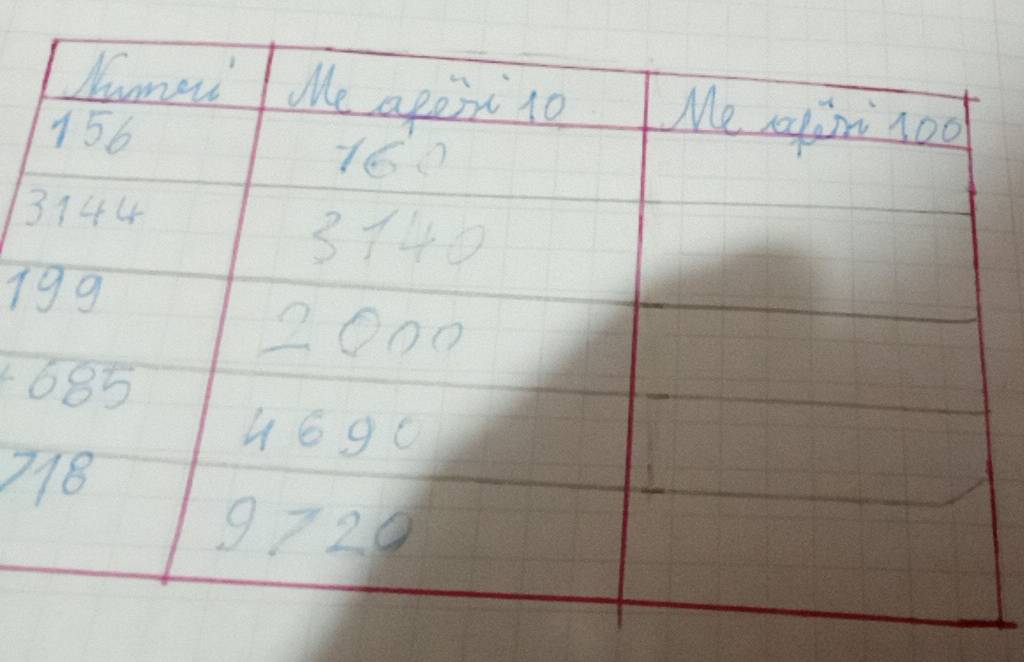 Numeri Me afërsi 10 Me afërsi 100
156 160
3144 3140
199 2000
685 4690
718 9720